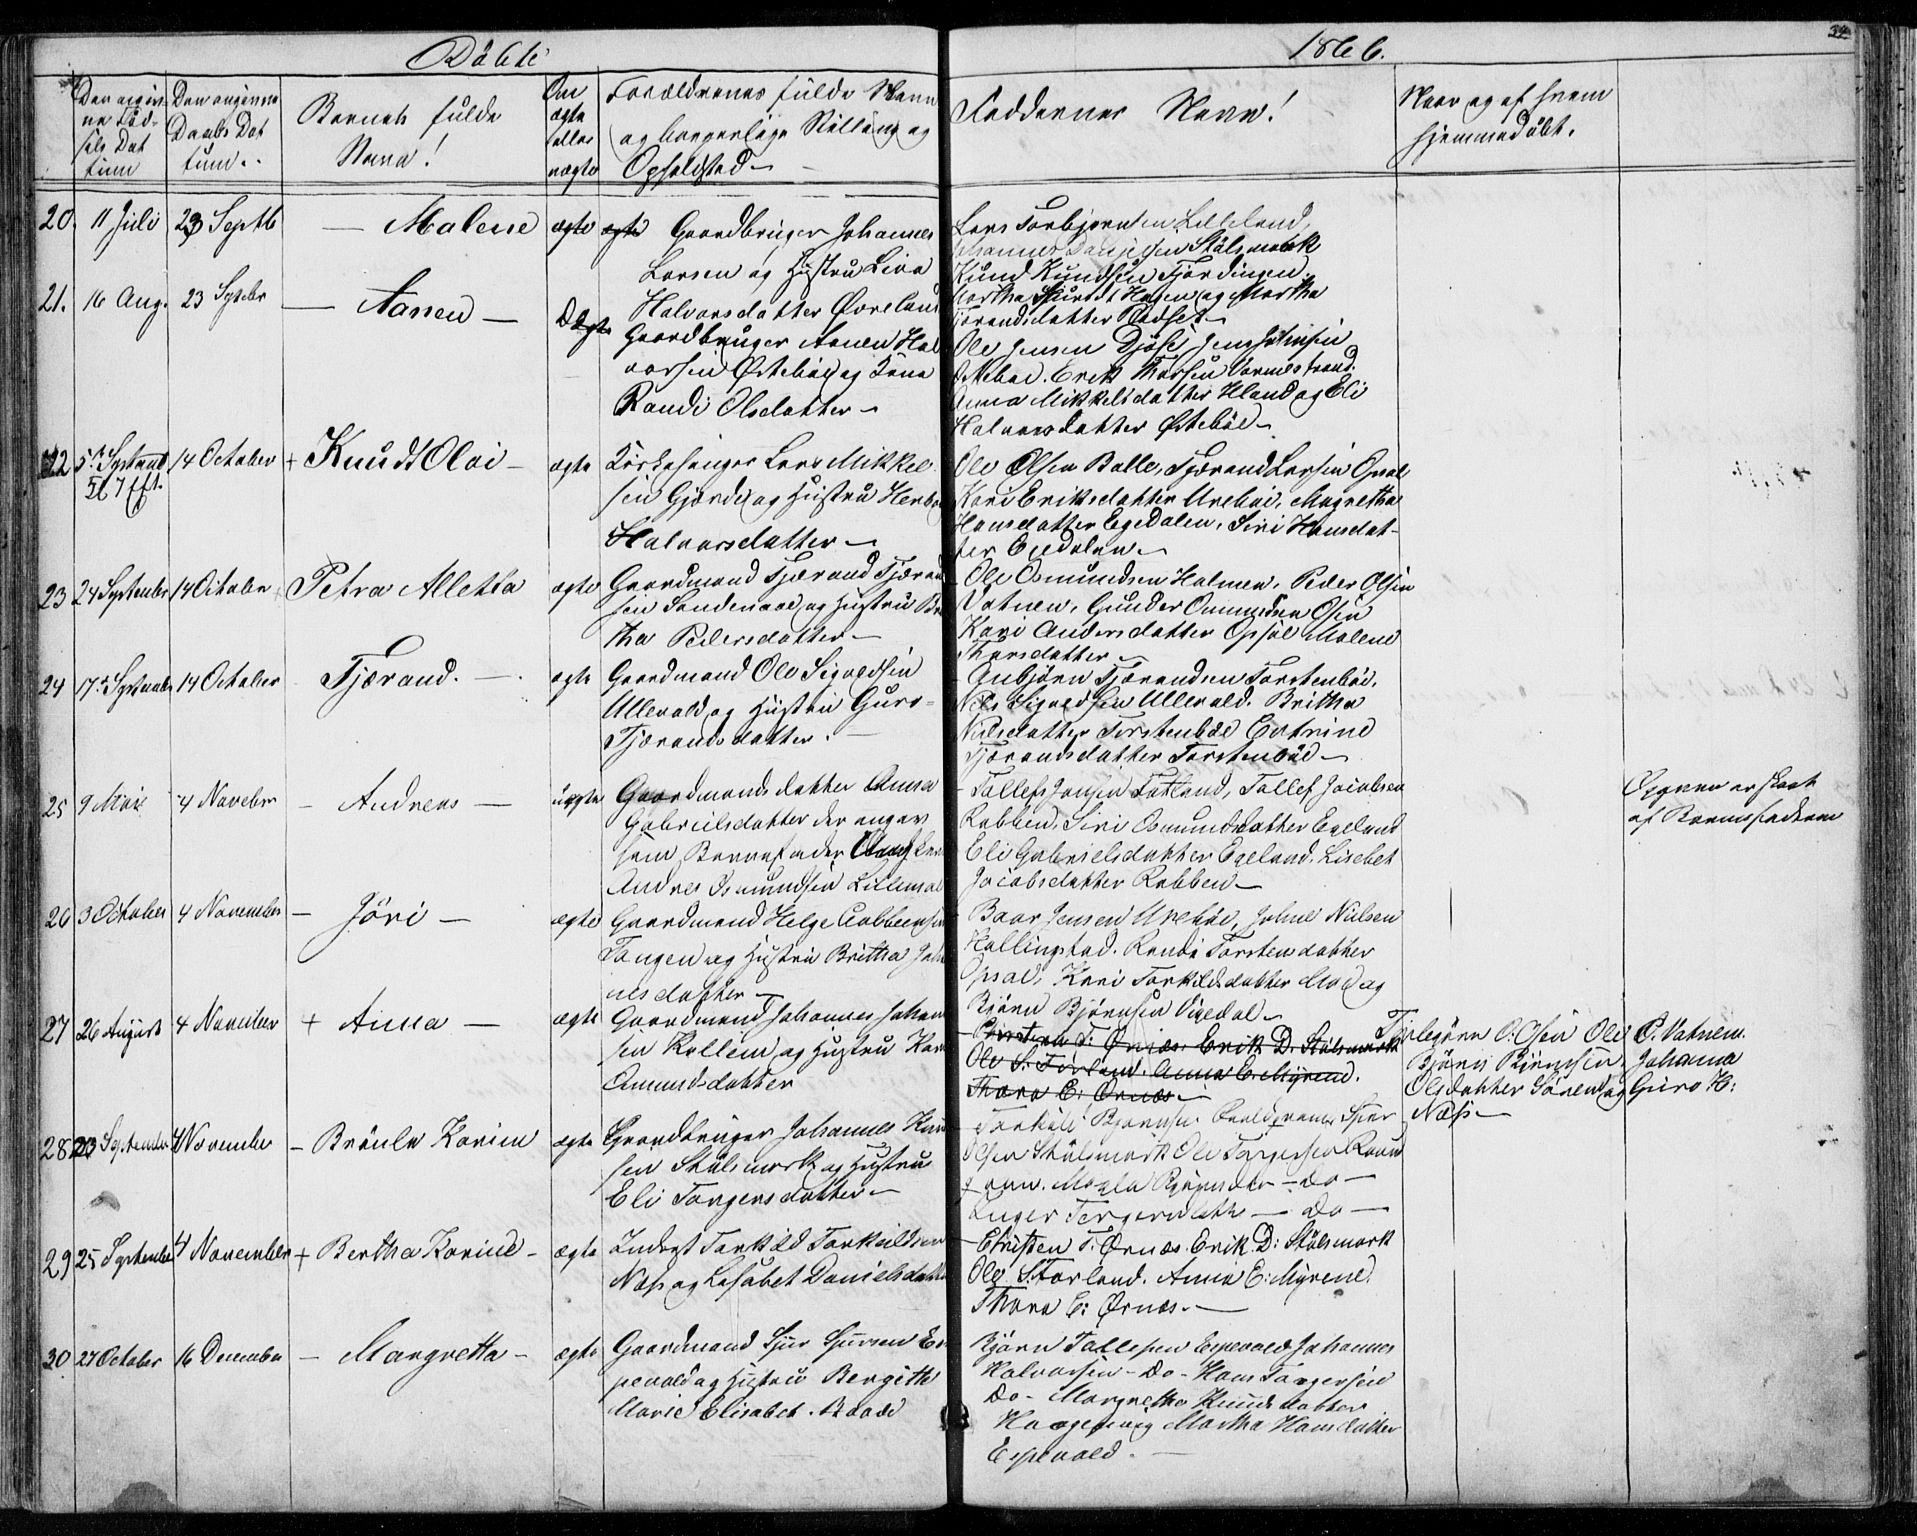 Döbte
1866.
34
Den opgiv-
ne Föd-
sels Dat
tum
Den angivne
Daabs Dat
tum.
Barnets fulde
Navn!
Om
ægte
eller
uægte
Forældrenes fulde Navn
og borgerlige Stilling og
Opholdsted
Faddernes Navn!
Naar og af hvem
hjemmedöbt.
20. 11 Juli 23 Septb — Malene ægte ægte Gaardbruger Johannes
Larsen og Hustru Liva
Halvorsdatter Övreland
Lars Torbjörnsen Lilleland,
Johannes Stålsmark
Knud Knudsen Fjordingen
Martha Hagen og Martha
Tjerandsdatter
21. 16 Aug. 23 Septebr — Aanen — Ægte
Gaardbruger Aanen Hal
vorsen Östeböe og Kone
Randi Olsdatter —
Ole Jensen Djöse Jens
Östeböe. Erik Vormestrand.
Anna Mikkelsdatter Hland og Eli
Halvorsdatter Östeböe —
22 5te Septemb 14 October + Knudt Olai — ægte Kirkesanger Lars Mikkel-
sen Gjerde og Hustru Herborg
Halvorsdatter —
Kl 7 Eft.
Ole Olsen Balle, Tjerand Larsen Opsal
Kari Eriksdatter Ureböe, Magretha
Hansdatter Egedalen, Siri Hansdat-
ter Egedalen —
23 24 September 14 October Petra Alletta ægte Gaardmand Tjerand Tjerand
sen Sandenaae og Hustru Bri
tha Pedersdatter —
Ole Osmundsen Halmen, Peder Olsen
Vatnen, Gunder Omundsen Osen
Kari Andersdatter Opsal Malene
Thorsdatter —
24 17de Septemb 14 October Tjærand. — ægte Gaardmand Ole Sigvedsen
Ullevold og Hustru Guro
Tjærandsdatter. —
Anbjörn Tjærandsen Torstenböe,
Nils Sigvedsen Ullevold. Britha
Nilsdatter Torstenböe Cathrine
Tjærandsdatter Torstenböe —
25 9 Mai 4 Novebr — Andreas — uægte Gaardmandsdatter Anna
Gabrielsdatter der angav
som Barnefader
Andres Osmundsen
Tollef Jonsen Fatland, Tollef Jacobsen
Rabben, Siri Osmundsdatter Egeland
Eli Gabrielsdatter Egeland. Lisebet
Jacobsdatter Rabben —
Opgiven er skeet
af Barnefaderen
26 3 October 4 November — Jöri — ægte Gaardmand Helge Colbeensen
Tangen og Hustru Britha Joha
nesdatter —
Baar Jensen Ureböe, Johne Nielsen
Hallingstad. Randi Torstensdatter
Opsal, Kari Torkildsdatter Moe og
Björn Björnsen Vigedal —
27 26 August 4 November + Anna — ægte Gaardmand Johannes Johan
sen Rullem og Hustru Kar
Omundsdatter
Christen T: Örnæs. Erik D. Stålsmark
Ole S. Torland. Anna E. Myrene.
Thora E: Örnæs —
Torbjörn O: Osen Ole O. Vatnem.
Björn Björnsen, Johanna
Olsdatter Sönen og Guro H:
Næss —
28 23 September 4 November — Bröula Karine ægte Gaardbruger Johannes Knu
sen Stålsmark og Hustru
Eli Torgersdatter —
Torkild Björnsen
Olsen Stålsmark Ole Torgersen
— do —
Inger Torgersdatte — Do —
29 25 September 4 November + Bertha Karine — ægte Inderst Torkild Torkildsen
Næs og Lisabet Danielsdatter
Christen T: Örnæs. Erik. D: Stålsmark
Ole S. Torland. Anna E: Myrene.
Thora E: Örnæs. —
30 27 October 16 December — Margretta — ægte Gaardmand Sjur Sjursen Es
pevold og Hustru Bergitte
Marie Elisabet. Baade
Björn Tollefsen Espevold Johannes
Halvorsen — Do — Hans Torgersen
Do — Margretha Knudsdatter
og Martha Hansdatter
Espevold. —